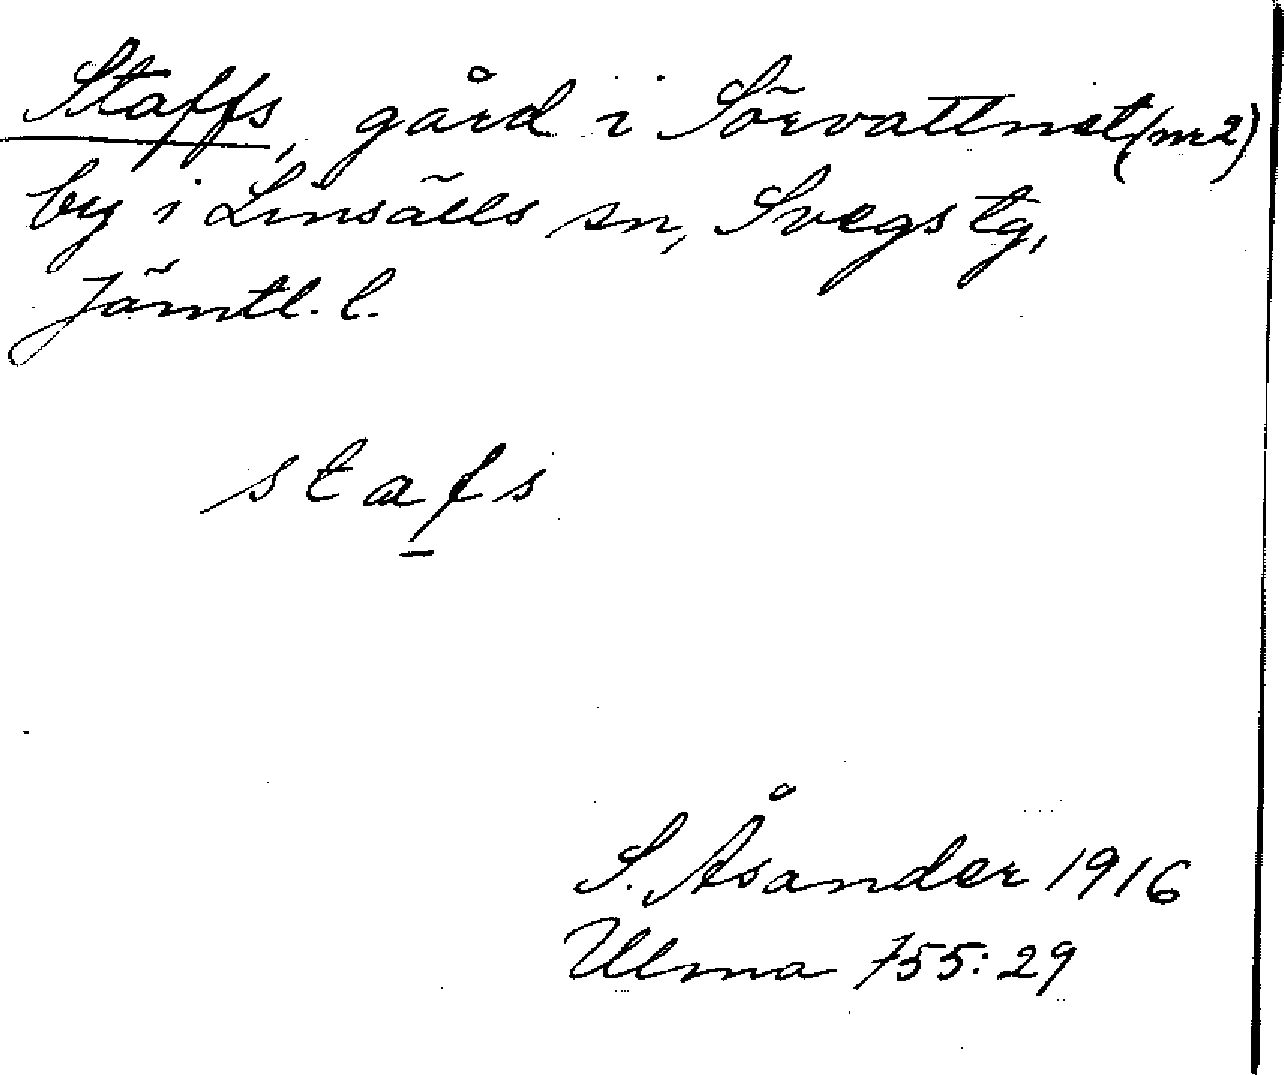 Staffs, gård i Sörvattnet (nr 2)
by i Linsälls sn, Svegs tg,
Jämtl. l.
stafs
S. Åsander 1916
Ulma 755:29